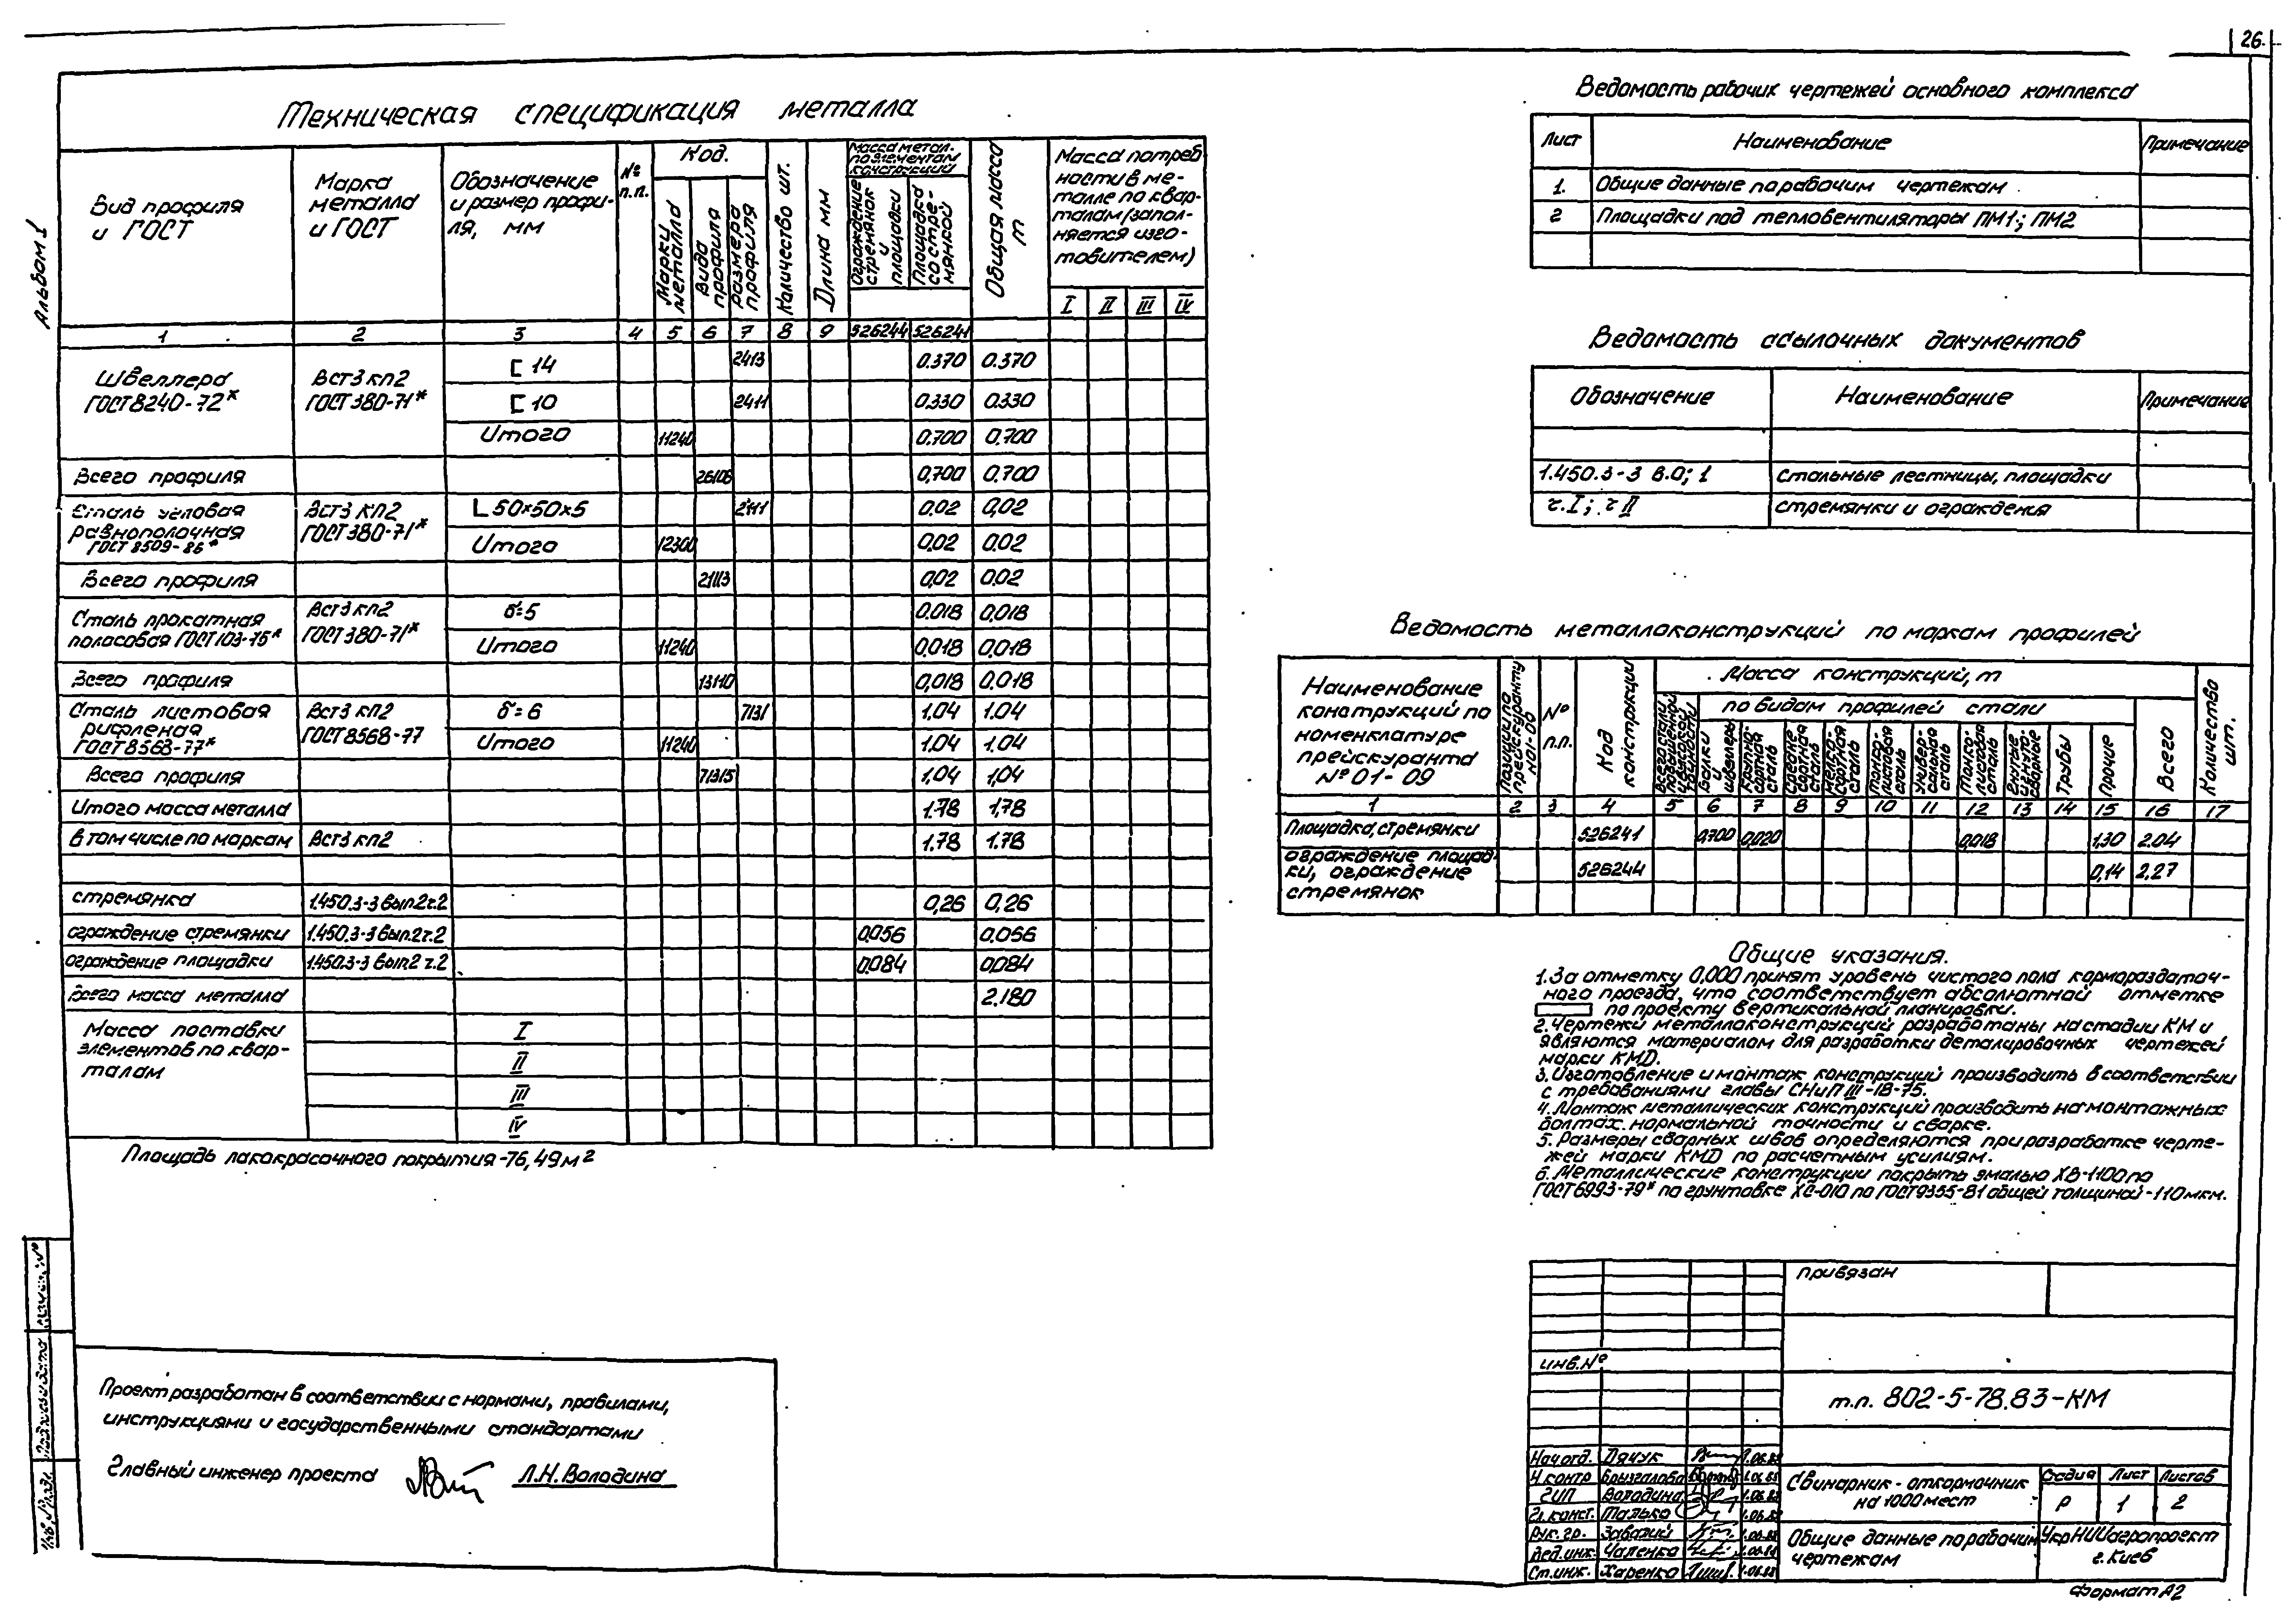 26.
Альбом I
Техническая спецификация металла
Вид профиля и ГОСТ
Марка металла и ГОСТ
Обозначение и размер профиля, мм
№ п.п.
Код.
Марки металла
Вида профиля
Размера профиля
Количество шт.
Длина мм
Масса метал. по элементам конструкций
Ограждение стремянок и площадки
Площадка со стремянкой
Общая масса т
Масса потребности в металле по кварталам (заполняется изготовителем)
I II III IV
1 2 3 4 5 6 7 8 9 526244 526241
Швеллера ГОСТ 8240-72* ВСт3кп2 ГОСТ 380-71* [ 14 2413 0.370 0.370
[ 10 2411 0.330 0.330
Итого 11240 0.700 0.700
Всего профиля 26108 0,700 0.700
Сталь угловая равнополочная ГОСТ 8509-86* ВСт3кп2 ГОСТ 380-71* L 50×50×5 2111 0.02 0,02
Итого 12300 0.02 0.02
Всего профиля 21113 0,02 0.02
Сталь прокатная полосовая ГОСТ 103-76* ВСт3кп2 ГОСТ 380-71* δ=5 0.018 0,018
Итого 11240 0,018 0,018
Всего профиля 13110 0,018 0.018
Сталь листовая рифленая ГОСТ 8568-77* ВСт3кп2 ГОСТ 8568-77 δ=6 7131 1.04 1.04
Итого 11240 1.04 1.04
Всего профиля 71315 1,04 1,04
Итого масса металла 1.78 1,78
в том числе по маркам ВСт3кп2 1.78 1.78
стремянка 1.450.3-3 вып.2 ч.2 0,26 0,26
ограждение стремянки 1.450.3-3 вып.2 ч.2 0,056 0.056
ограждение площадки 1.450.3-3 вып.2 ч.2 0,084 0,084
Всего масса металла 2.180
Масса поставки элементов по кварталам
I
II
III
IV
Площадь лакокрасочного покрытия-76,49м²
Проект разработан в соответствии с нормами, правилами,
инструкциями и государственными стандартами
Главный инженер проекта Л.Н.Володина
Ведомость рабочих чертежей основного комплекса
Лист Наименование Примечание
1. Общие данные по рабочим чертежам
2 Площадки под тепловентиляторы ПМ1; ПМ2
Ведомость ссылочных документов
Обозначение Наименование Примечание
1.450.3-3 в.0; 1 Стальные лестницы, площадки
ч.I; ч II стремянки и ограждения
Ведомость металлоконструкций по маркам профилей
Наименование конструкций по номенклатуре прейскуранта №01-09
Позиции по прейскуранту №01-09
№ п.п.
Код конструкции
Масса конструкций, т
по видам профилей стали
Балки и швеллеры
Крупносортная сталь
Среднесортная сталь
Мелкосортная сталь
Толстолистовая сталь
Универсальная сталь
Тонколистовая сталь
Трубы
Прочие
Всего
Количество шт.
1 2 3 4 5 6 7 8 9 10 11 12 13 14 15 16 17
Площадка, стремянки 526241 0,700 0,020 0,018 1,30 2.04
ограждение площадки, ограждение стремянок 526244 0,14 2,27
Общие указания.
1. За отметку 0,000 принят уровень чистого пола кормораздаточ-
ного проезда, что соответствует абсолютной отметке
по проекту вертикальной планировки.
2. Чертежи металлоконструкций разработаны на стадии КМ и
являются материалом для разработки деталировочных чертежей
марки КМД.
3. Изготовление и монтаж конструкций производить в соответствии
с требованиями главы СНиП III-18-75.
4. Монтаж металлических конструкций производить на монтажных
болтах нормальной точности и сварке.
5. Размеры сварных швов определяются при разработке черте-
жей марки КМД по расчетным усилиям.
6. Металлические конструкции покрыть эмалью ХВ-1100 по
ГОСТ 6993-79* по грунтовке ХС-010 по ГОСТ 9355-81 общей толщиной-110мкм.
привязан
инв.№
т.п. 802-5-78.83-КМ
Нач.отд. Дячук 1.06.83
Н.контр Брызгалова 1.06.83
ГИП Володина 1.06.83
Гл.конст. Талько 1.06.83
Рук.гр. Завалий 1.06.83
Вед.инж. Чаленко 1.06.83
Ст.инж. Харенко 1.06.83
Свинарник-откормочник
на 1000 мест
Стадия Лист Листов
Р 1 2
Общие данные по рабочим
чертежам
УкрНИИагропроект
г.Киев
Формат А2